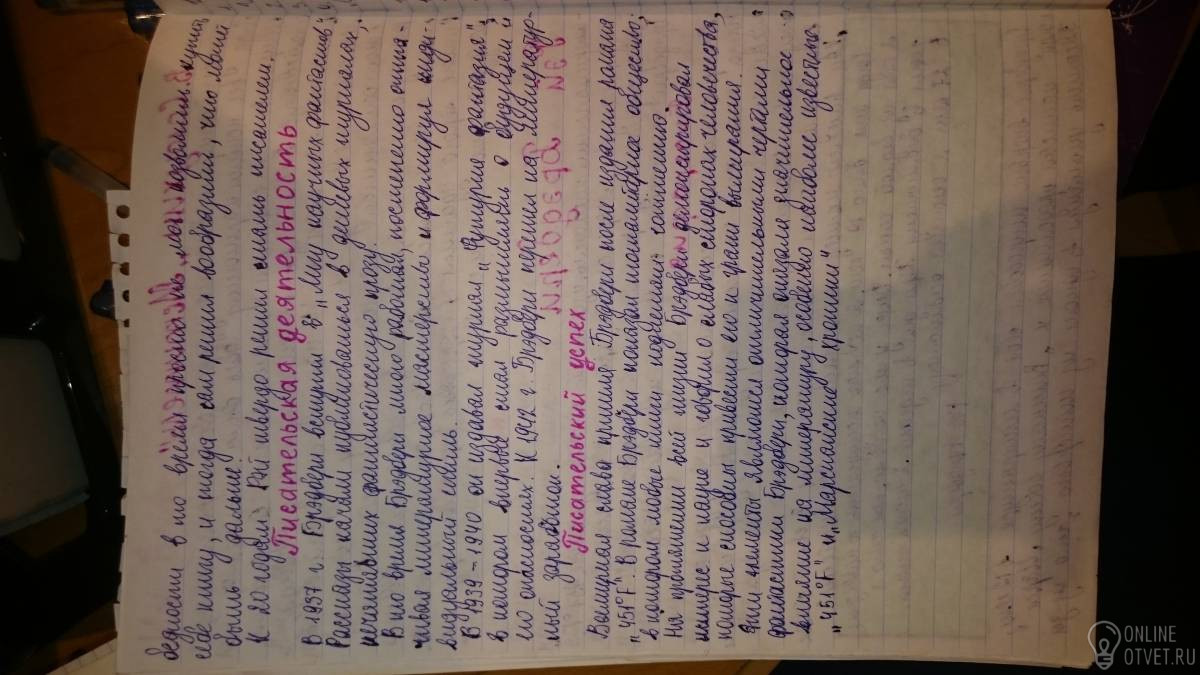 бедности в то время
себе книгу, и тогда сам решил вообразить, что
было дальше.
К 20 годам Рэй твердо решил стать писателем.
Писательская деятельность
В 1937 г. Брэдбери вступил в "Лигу научных фантастов",
Рассказы начали публиковаться в дешевых журналах,
печатавших фантастическую прозу.
В это время Брэдбери много работал, постепенно отта-
чивая литературное мастерство и формируя инди-
видуальный стиль.
В 1939-1940 он издавал журнал "Футурия фантазия",
в котором впервые стал размышлять о будущем и
его опасностях. К 1942 г. Брэдбери перешел на литератур-
ный заработок.
Писательский успех
Всемирная слава пришла к Брэдбери после издания романа
"451°F". В романе Брэдбери показал тоталитарное общество,
в котором любые
На протяжении всей жизни Брэдбери
интерес к науке и говорил о слабых сторонах человечества,
которые способны привести его к грани вымирания.
Эти элементы являются отличительными чертами
фантастики Брэдбери, которая оказала значительное
влияние на литературу, особенно известны
"451°F" и "Марсианские хроники"
ONLINE
OTVET.RU